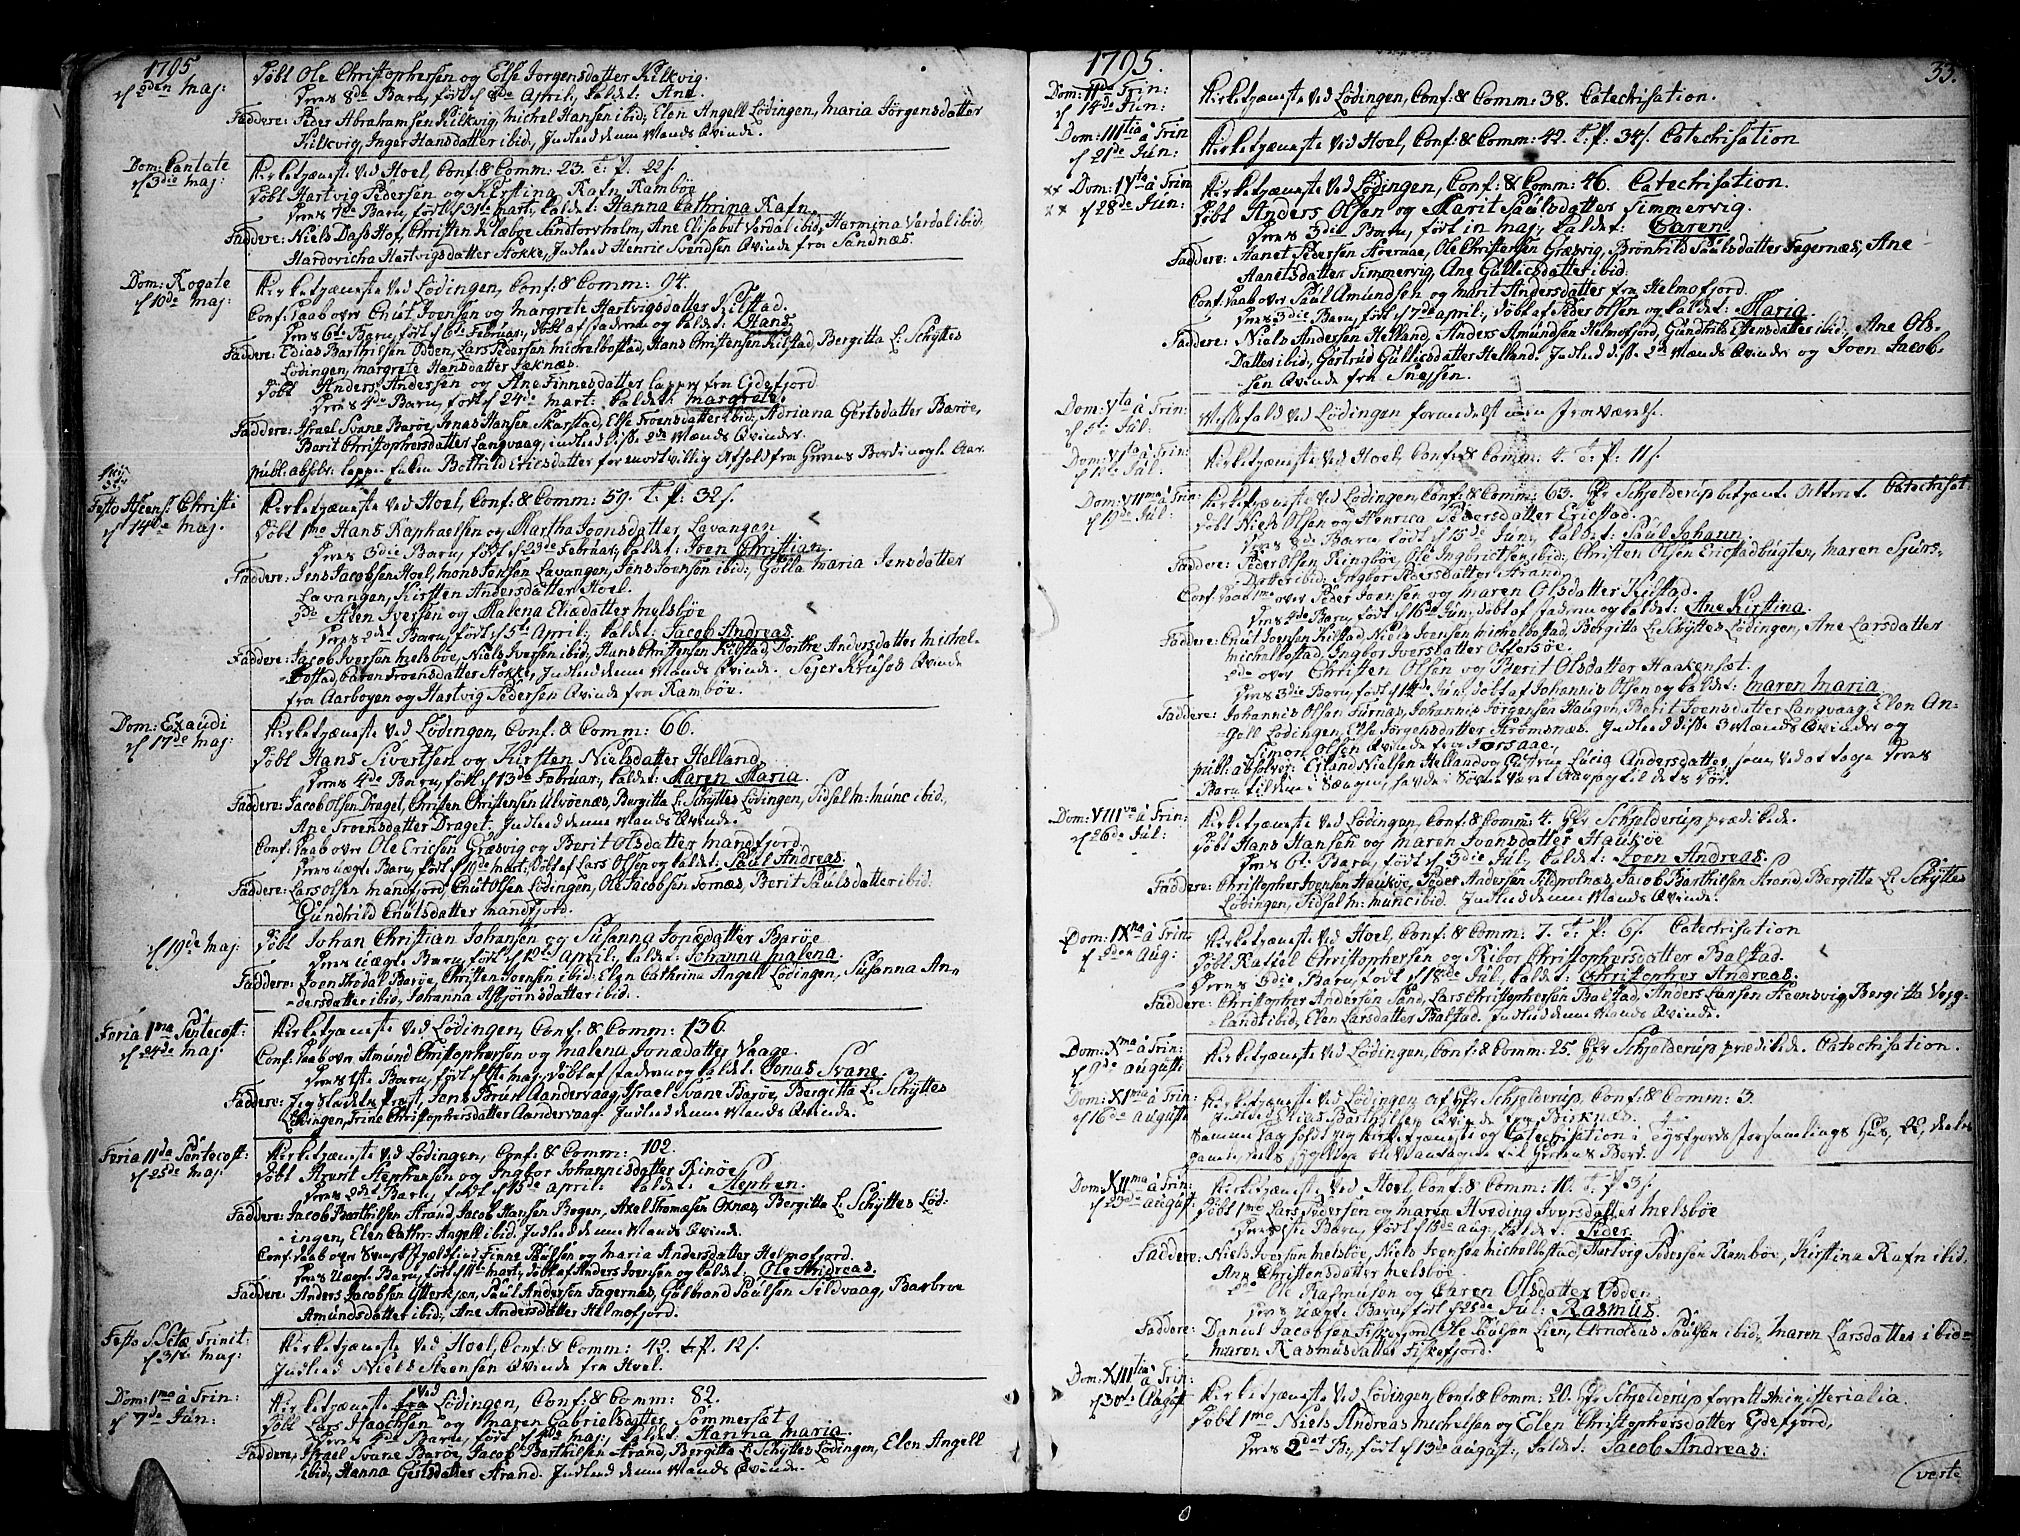 1795
d 2den Maj:
Døbt Ole Christophersen og Else Jorgensdatter Kilkvig.
Deres 8de Barn, født d 8de April; kaldet: Ane.
Faddere: Peder Abrahamsen Kilkvig, Michel Hansen ibid; Elen Angell Lødingen, Maria Jørgensdatter
Kilkvig, Inger Hansdatter ibid; Indled denne Mands Qvinde.
Dom: Cantate
d 3die Maj:
Kirketjæneste ved Hoel, Conf: & Comm: 23. T. P. 22 s.
Døbt Hartvig Pedersen og Kirstina Rafn Rambøe
Deres 7de Barn, født d 31te Mart, kaldet: Hanna Cathrina Rafn.
Faddere: Niels Dass Hof, Christen Klæboe Sandtorvholm, Ane Elisabet Verdal ibid, Harmina Verdal ibid,
Hardovicha Hartvigsdatter Fokke, Indled Henric Svendsens Qvinde fra Sandnæs.
Dom: Rogate
d 10de Maj:
Kirketjæneste ved Lødingen, Conf: & Comm: 94.
Conf: Daab over Cnut Joensen og Margrete Hartvigsdatter Kilstad.
Deres 6te Barn, født d 6te Februar; døbt af Faderen og kaldet: Hans
Faddere: Edias Barthilsen Odden, Lars Pedersen Michelbostad, Hans Christensen Kilstad Bergitta L: Schyttes
Lødingen, Margrete Hansdatter Læknæs.
Døbt Anders Andersen og Ane Finnesdatter Lapper fra Efdefjord
Deres 4de Barn, født d 24de Mart: kaldet: Margrete.
Faddere: Israel Svane Barøe, Jonas Hansen Skarstad, Else Troensdatter ibid, Adriana Gertsdatter Barøe,
Berit Christophersdatter Langvaag, indled disse 2de Mænds Qvinder.
Publ: absolv: Lappe Enken Bothild Ericsdatter for mortvillig Afhold fra Herrens Bord i nogle Aar.
Festo Ascens: Christi
d 14de Maj.
Kirketjæneste ved Hoel, Conf: & Comm: 59. T. P: 32 s.
Døbt 1mo Hans Raphaelsen og Martha Joensdatter Lavangen
Deres 3die Barn, født d 23de Februar, kaldet: Joen Christian
Faddere: Jens Jacobsen Hoel, Mons Jensen Lavangen, Jens Joensen ibid; Gølla Maria Jensdatter
Lavangen, Kirsten Andersdatter Hoel.
2do Aren Iversen og Malena Eliædatter Melsbøe
Deres 2det Barn, født d 5te April; kaldet: Jacob Andreas.
Faddere: Jacob Iversen Melsbøe, Niels Iversen ibid, Hans Christensen Kilstad, Dorthe Andersdatter Michel-
-bostad, Caren Troensdatter Fokke, Indled denne Mands Qvinde. Pejer Kruses Qvinde
fra Aarbogen og Hartvig Pedersens Qvinde fra Rambøe.
Dom: Exaudi
d 17de Maj:
Kirketjæneste ved Lødingen, Conf: & Comm: 66.
Døbt Hans Sivertsen og Kirsten Nielsdatter Helland
Deres 4de Barn, født d 13de Februar, kaldet: Maren Maria.
Faddere: Jacob Olsen Draget, Christen Christensen Ulvøenæs, Bergitta L: Schyttes Lødingen, Sidsel M: Munc ibid,
Ane Troensdatter Draget. Indled denne Mands Qvinde.
Conf: Daab over Ole Ericsen Græsvig og Berit Olsdatter Mandfjord
Deres uægte Barn, født d 11de Mart; døbt af Lars Olsen og kaldet: Paul Andreas.
Faddere: Lars Olsen Mandfjord, Cnut Olsen Lødingen, Ole Jacobsen Fornæs, Berit Paulsdatter ibid.
Gundhild Cnutsdatter Mandfjord.
d 19de Maj:
Døbt Johan Christian Johansen og Susanna Topædatter Barøe
Deres uægte Barn, født d 12te April, kaldet: Johanna Malena.
Faddere: Joen Skodal Barøe, Christen Joensen ibid: Elen Cathrina Angell Lødingen, Susanna An-
-dersdatter ibid, Johanna Asbjørnsdatter ibid.
Feria 1ma Pentecost:
d 24de Maj:
Kirketjæneste ved Lødingen, Conf: & Comm: 136.
Conf: Daab over Amund Christophersen og Malena Jonædatter Vaage.
Deres 1ste Barn, født d 1te Maj, døbt af Faderen og kaldet: Jonas Svane.
Faddere: Jeg Stedets Præst, Jens Brun Sandervaag, Israel Svane Barøe, Bergitta L: Schyttes
Lødingen, Trine Christophersdatter Sandervaag. Indled denne Mands Qvinde.
Feria 11da Pentecost:
d 25de Maj:
Kirketjæneste ved Lødingen, Conf: & Comm: 102.
Døbt Arent Stephensen og Ingbor Johannisdatter Rinøe
Deres 2det Barn, født d 15de April: kaldet: Stephen.
Faddere: Jacob Barthilsen Strand, Jacob Hansen Bogen, Axel Thomæsen Oxnæs, Bergitta L: Schyttes Lød-
- ingen, Elen Cathr: Angell ibid. Indled denne Mands Qvinde.
Conf: Daab over Svensk Fjeldfind Finne Paulsen og Maria Andersdatter Helmofjord.
Deres Uægte Barn, født d 11te Mart; døbt af Anders Joensen og kaldet: Ole Andreas.
Faddere: Anders Jacobsen Ytterkjæn, Paul Andersen Fagernæs, Gulbrand Paulsen Sildvaag, Barbroe
Amundsdatter ibid; Ane Andersdatter Helmofjord.
Festo S:Sctæ Trinit:
d 31te Maj:
Kirketjæneste ved Hoel, Conf: & Comm: 42. T. P. 12 s.
Indled Niels Steensens Qvinde fra Hoel.
Dom: 1ma à Trin:
d 7de Jun:
Kirketjæneste ved Lødingen, Conf: & Comm: 82.
Døbt Lars Isachsen og Maren Gabrielsdatter Sommerset
kaldet: Hanna Maria.
Faddere, Israel Svane Barøe, Jacob Barthilsen Strand, Bergitta L: Schyttes Lødingen, Elen Angell
ibid, Hanna Gertsdatter Strand. Indled denne Mands Qvinde.
1795.
33.
Dom: 11da Trin:
d 14de Jun:
Kirketjæneste ved Lødingen, Conf: & Comm: 38. Catechisation.
Dom: 111tia à Trin
d 21de Jun:
Kirketjæneste ved Hoel, Conf: & Comm: 42. T. P. 34 s. Catechisation
Dom: 1Vta à Trin
d 28de Jun:
Kirketjæneste ved Lødingen, Conf: & Comm: 46. Catechisation.
Døbt Anders Olsen og Marit Paulsdatter Simmervig.
Deres 3die Barn, født in Maj; kaldet: Caren
Faddere: Aanet Pedersen Storraae, Ole Christensen Græsvig, Brønhild Paulsdatter Fagernæs, Ane
Aanetsdatter Simmervig, Ane Gullicsdatter ibid.
Conf: Daab over Paul Amundsen og Marit Andersdatter fra Helmofjord.
Deres 3die Barn, født d 7de April; døbt af Peder Olsen og kaldet: Maria.
Faddere: Niels Andersen Helland, Anders Amundsen Helmofjord, Gundhild Ellensdatter ibid, Ane Ols-
Datter ibid, Gertrud Gullicsdatter Helland. Indled disse 2de Mænds Qvinder og Joen Jacob-
-sen Qvinde fra Snejsen.
Dom: Vta à Trin:
d 5te Jul:
Messefald ved Lødingen formedelst min Fraværelse.
Dom: V1ta à Trin:
d 12te Jul:
Kirketjæneste ved Hoel, Conf: & Comm: 4. T. P: 11 s.
Dom: V11ma à Trin:
d 19de Jul:
Kirketjæneste ved Lødingen, Conf: & Comm: 63. Hr Schjelderup betjente Alteret. Catechisat:
Døbt Niels Olsen og Henrica Pedersdatter Ericstad.
Deres 2de Barn født d 15de Jun; kaldet: Paul Johann.
Faddere: Peder Olsen Ringbøe, Ole Ingbrictsen ibid: Christen Olsen Ericstadbugten, Maren Sjurs-
Datter ibid, Ingbor Pedersdatter Strand.
Conf: Daab 1mo over Peder Joensen og Maren Olsdatter Kilstad.
Deres 2de Barn, født d 16de Jun; døbt af Faderen og kaldet: Ane Kirstina.
Faddere: Cnut Joensen Kilstad Niels Joensen Michelbostad, Bergitta L: Schyttes Lødingen, Ane Larsdatter
Michelbostad, Ingbor Iversdatter Offersøe.
2do over Christen Olsen og Berit Olsdatter Haakenset.
Deres 3die Barn, født d 14de Jun, døbt af Johannis Olsen og kaldet: Maren Maria
Faddere: Johannis Olsen Furnæs, Johannis Jørgensen Haugen, Berit Joensdatter Langvaag, Elen An-
gell Lødingen, Else Jørgensdatter Strømsnæs. Indled disse 3 Mænds Qvinder og
Simon Olsens Qvinde fra Forsaae.
publ: absolver: Erland Nielsen Helland og Gutrue Lucia Andersdatter, som, ved at tage deres
Barn til dem i Sængen, havde i Søvne været Aarsag til dets Død.
Dom: V111va à Trin:
d 26de Jul:
Kirketjæneste ved Lødingen, Conf: & Comm: 4. Hr Schjelderup prædikede.
Døbt Hans Hansen og Maren Joensdatter Hauskøe
Deres 6te Barn, født d 3die Jul, kaldet: Joen Andreas.
Faddere: Christopher Joensen Hauskøe, Peder Andersen Sildpolnæs, Jacob Barthilsen Strand, Bergitta L: Schyttes
Lødingen, Sidsel M: Munc ibid. Indled denne Mands Qvinde.
Dom: 1Xna à Trin
d 2den Aug:
Kirketjæneste ved Hoel, Conf: & Comm: 7. T. P. 6 s. Catechisation
Døbt Rassel Christophersen og Ribor Christophersdatter Balstad.
Deres 3die Barn, født d 18de Jul, kaldet: Christopher Andreas.
Faddere: Christopher Andersen Sand, Lars Christophersen Balstad, Anders Larsen Steensvig, Bergitta Vejg-
-landt ibid, Elen Larsdatter Balstad. Indled denne Mands Qvinde.
Dom: Xma à Trin:
d 9de Augusti
Kirketjæneste ved Lødingen, Conf: & Comm: 25. Hr Schjelderup prædikede. Catechisation.
Dom: X1ma à Trin:
d 16de Augusti
Kirketjæneste ved Lødingen af Hr Schjelderup, Conf: & Comm: 3.
Indled Elias Barthilsens Qvinde fra Birknæs.
Samme Dag holdt jeg Kirketjæneste og Catechisation i Tysfjords Forsamlings Hus,
gamle
Dom: X11ma à Trin:
d 23de August
Kirketjæneste ved Hoel, Conf: & Comm: 10. T. P 3 s.
Døbt 1mo Lars Pedersen og Maren Hveding Iversdatter Melsbøe
Deres 1ste Barn, født d 15de Aug, kaldet: Peder
Faddere: Niels Iversen Melsbøe, Niels Ivensen Michelbostad, Hartvig Pedersen Rambøe, Kirstina Rafn ibid,
Ane Christensdatter Melsbøe.
2do Ole Rasmusen og Caren Olsdatter Odden.
Deres uægte Barn, født d 25de Jul: Rasmus.
Faddere: Daniel Jacobsen Fiskefjord, Ole Paulsen Lien, Arnoldus Paulsen ibid, Maren Larsdatter ibid-
Maren Rasmusdatter Fiskefjord.
Dom: X111tia à Trin:
d 30te August
Kirketjæneste ved Lødingen, Conf: & Comm: 20. Hr Schjelderup forrett: Ministerialia.
Døbt 1mo Niels Andreas Michelsen og Elen Christophersdatter Efdefjord,
Deres 2det B:, født d 13de August, kaldet: Jacob Andreas:
(verte